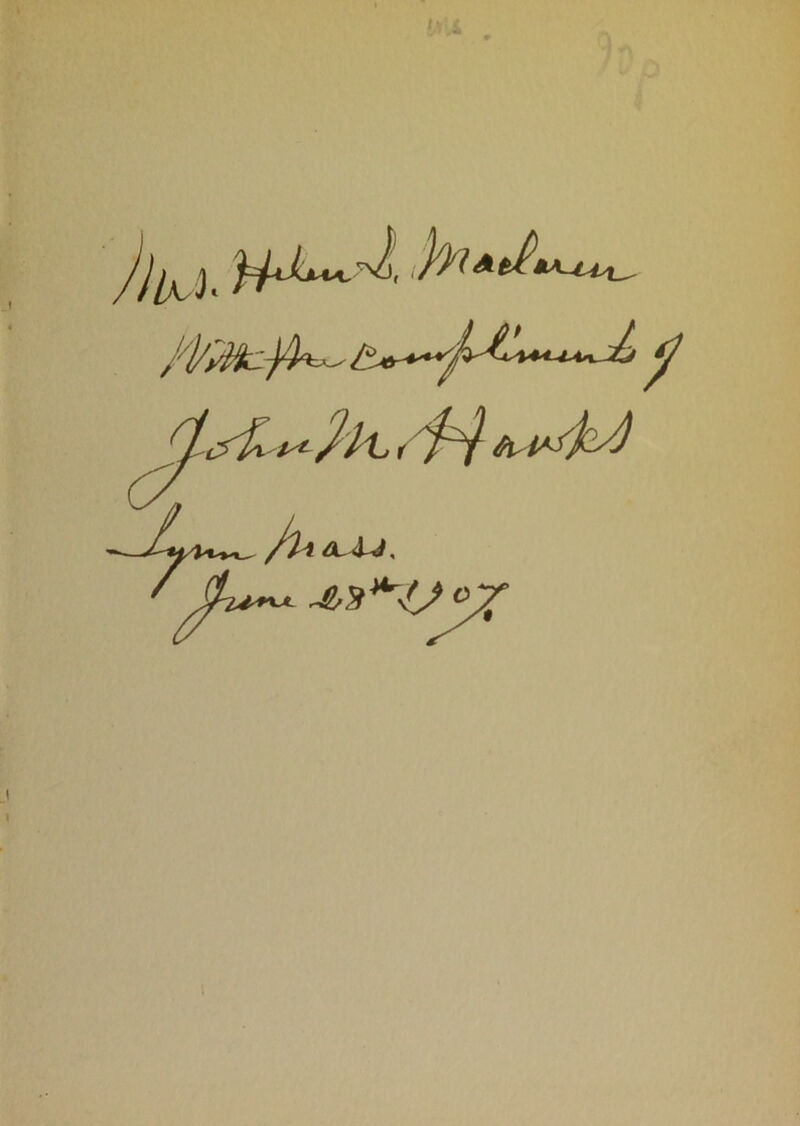 Mrs. Helen L. Maclaurin
With the Compliments of
John M. Hawks
Lynn Mass.
June 23rd 07